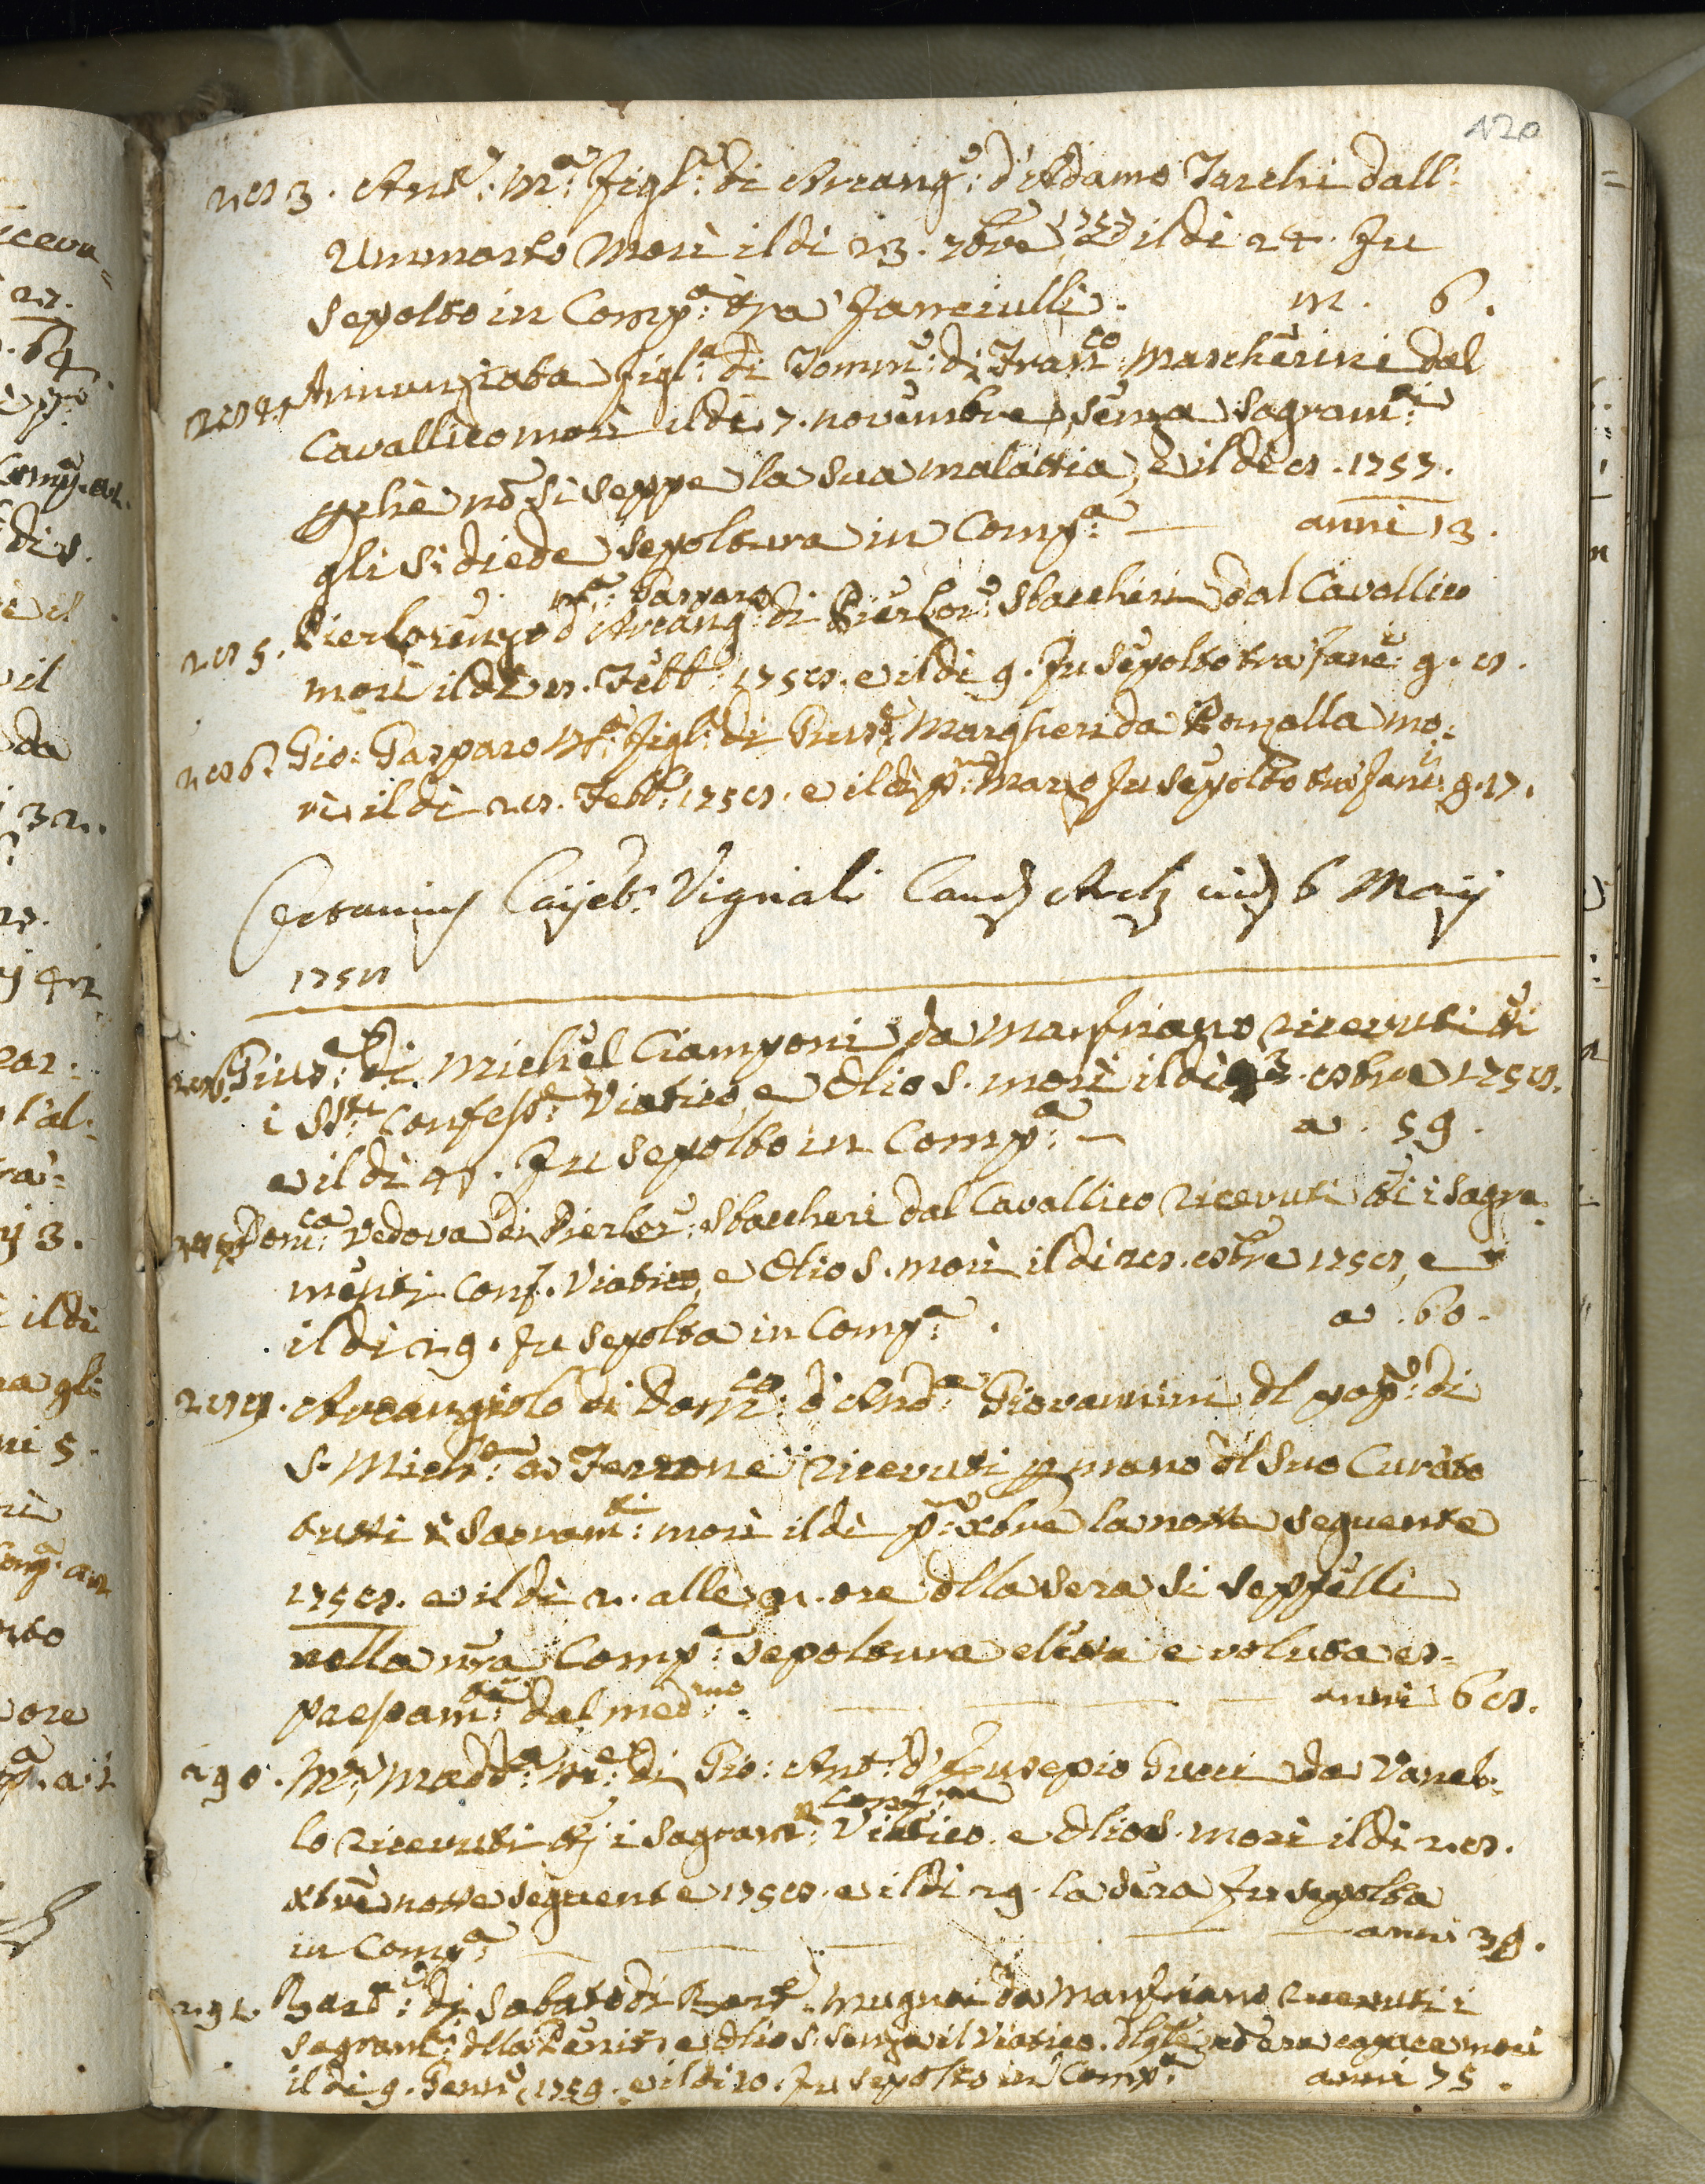 120
283. Ant.º: M.ª: figl.º: di Arcang.º: d'Adamo Turchi dall:
Ummorto Morì il dì 23. 7bre 1757 il dì 24. fu
sepolto in Comp.ª: tra fanciulli. m. 6.
284. Annunziata figl.ª di Tomm.º: di Fran.co: Mascherini dal
Cavallico morì il dì 7. novembre senza sagram.ti
p̱chè nõ si seppe la sua malattia, e il dì 8. 1757.
gli si diede sepoltura in Comp.ª: — anni 13.
M.ª: Gasparo
285. Pierlorenzo d'Arcang.º: di Pierlor.º: Sbaccheri dal Cavallico
morì il dì 8. Febb.º: 1758. e il dì 9. fu sepolto tra fanc.i: g. 8.
286. Gio: Gasparo M.ª: figl.º: di Gius.e: Margheri da Romolla mo:
rì il dì 28. Febb.º: 1758. e il dì p.mo: Marzo fu sepolto tra fanc.i: g. 17.
Vignali 6 Maij
1758
Gius.e: di Michel Ciamponi da Manfriano ricevuti tti
i S.ti: Confess.e: Viatico, e Olio S. morì il dì 3. 8bre 1758.
e il dì 4. fu sepolto in Comp.ª: — a. 59.
Dom.ca: Vedova di Pierlor.º: Sbaccheri dal Cavallico ricevuti tti i Sagra
menti Conf. Viatico, e Olio S. morì il dì 28. 8bre 1758, e
il dì 29. fu sepolta in Comp.ª: . a. 60.
289. Arcangiolo di Dom.co: d'And.ª: Giovannini dl pop.º: di
S. Mich.e: a Ferrone ricevuti p̱ mano dl suo Curato
tutti i Sagram.ti: morì il dì p.º: Xbre la notte seguente
1758. e il dì 2. alle 91. ore dlla sera si seppellì
nella nrã Comp.ª: sepoltura eletta e voluta es-
pressam.te: dal med.mo: . — anni 68.
290. M.ª: Madd.ª: M.e: di Gio: Ant.º: d'Eusepio Gucci da Vanel:
Conf.ne
lo ricevuti tti i Sagram.ti: Viatico. e Olio S. morì il dì 28.
Xbre notte seguente 1758. e il dì 29. la sera fu sepolta
in Comp.ª: — anni 39.
291. Bast.º: di Sabato di Bart.º: Mugnai da Manfriano ricevuti i
Sagram.ti: dlla Penit.ª e Olio S. senza il Viatico. era capace morì
il dì 9. Genn.º: 1759. e il dì 10. fu sepolto in Comp.ª: anni 75.